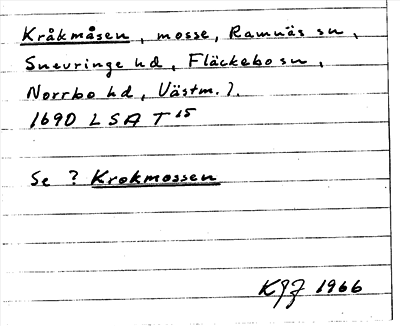 Kråkmåsen, mosse, Ramnäs sn,
Snevringe hd, Fläckebo sn,
Norrbo hd, Västm. l.
1690 LSA T 15
Se ? Krokmossen
KGJ 1966